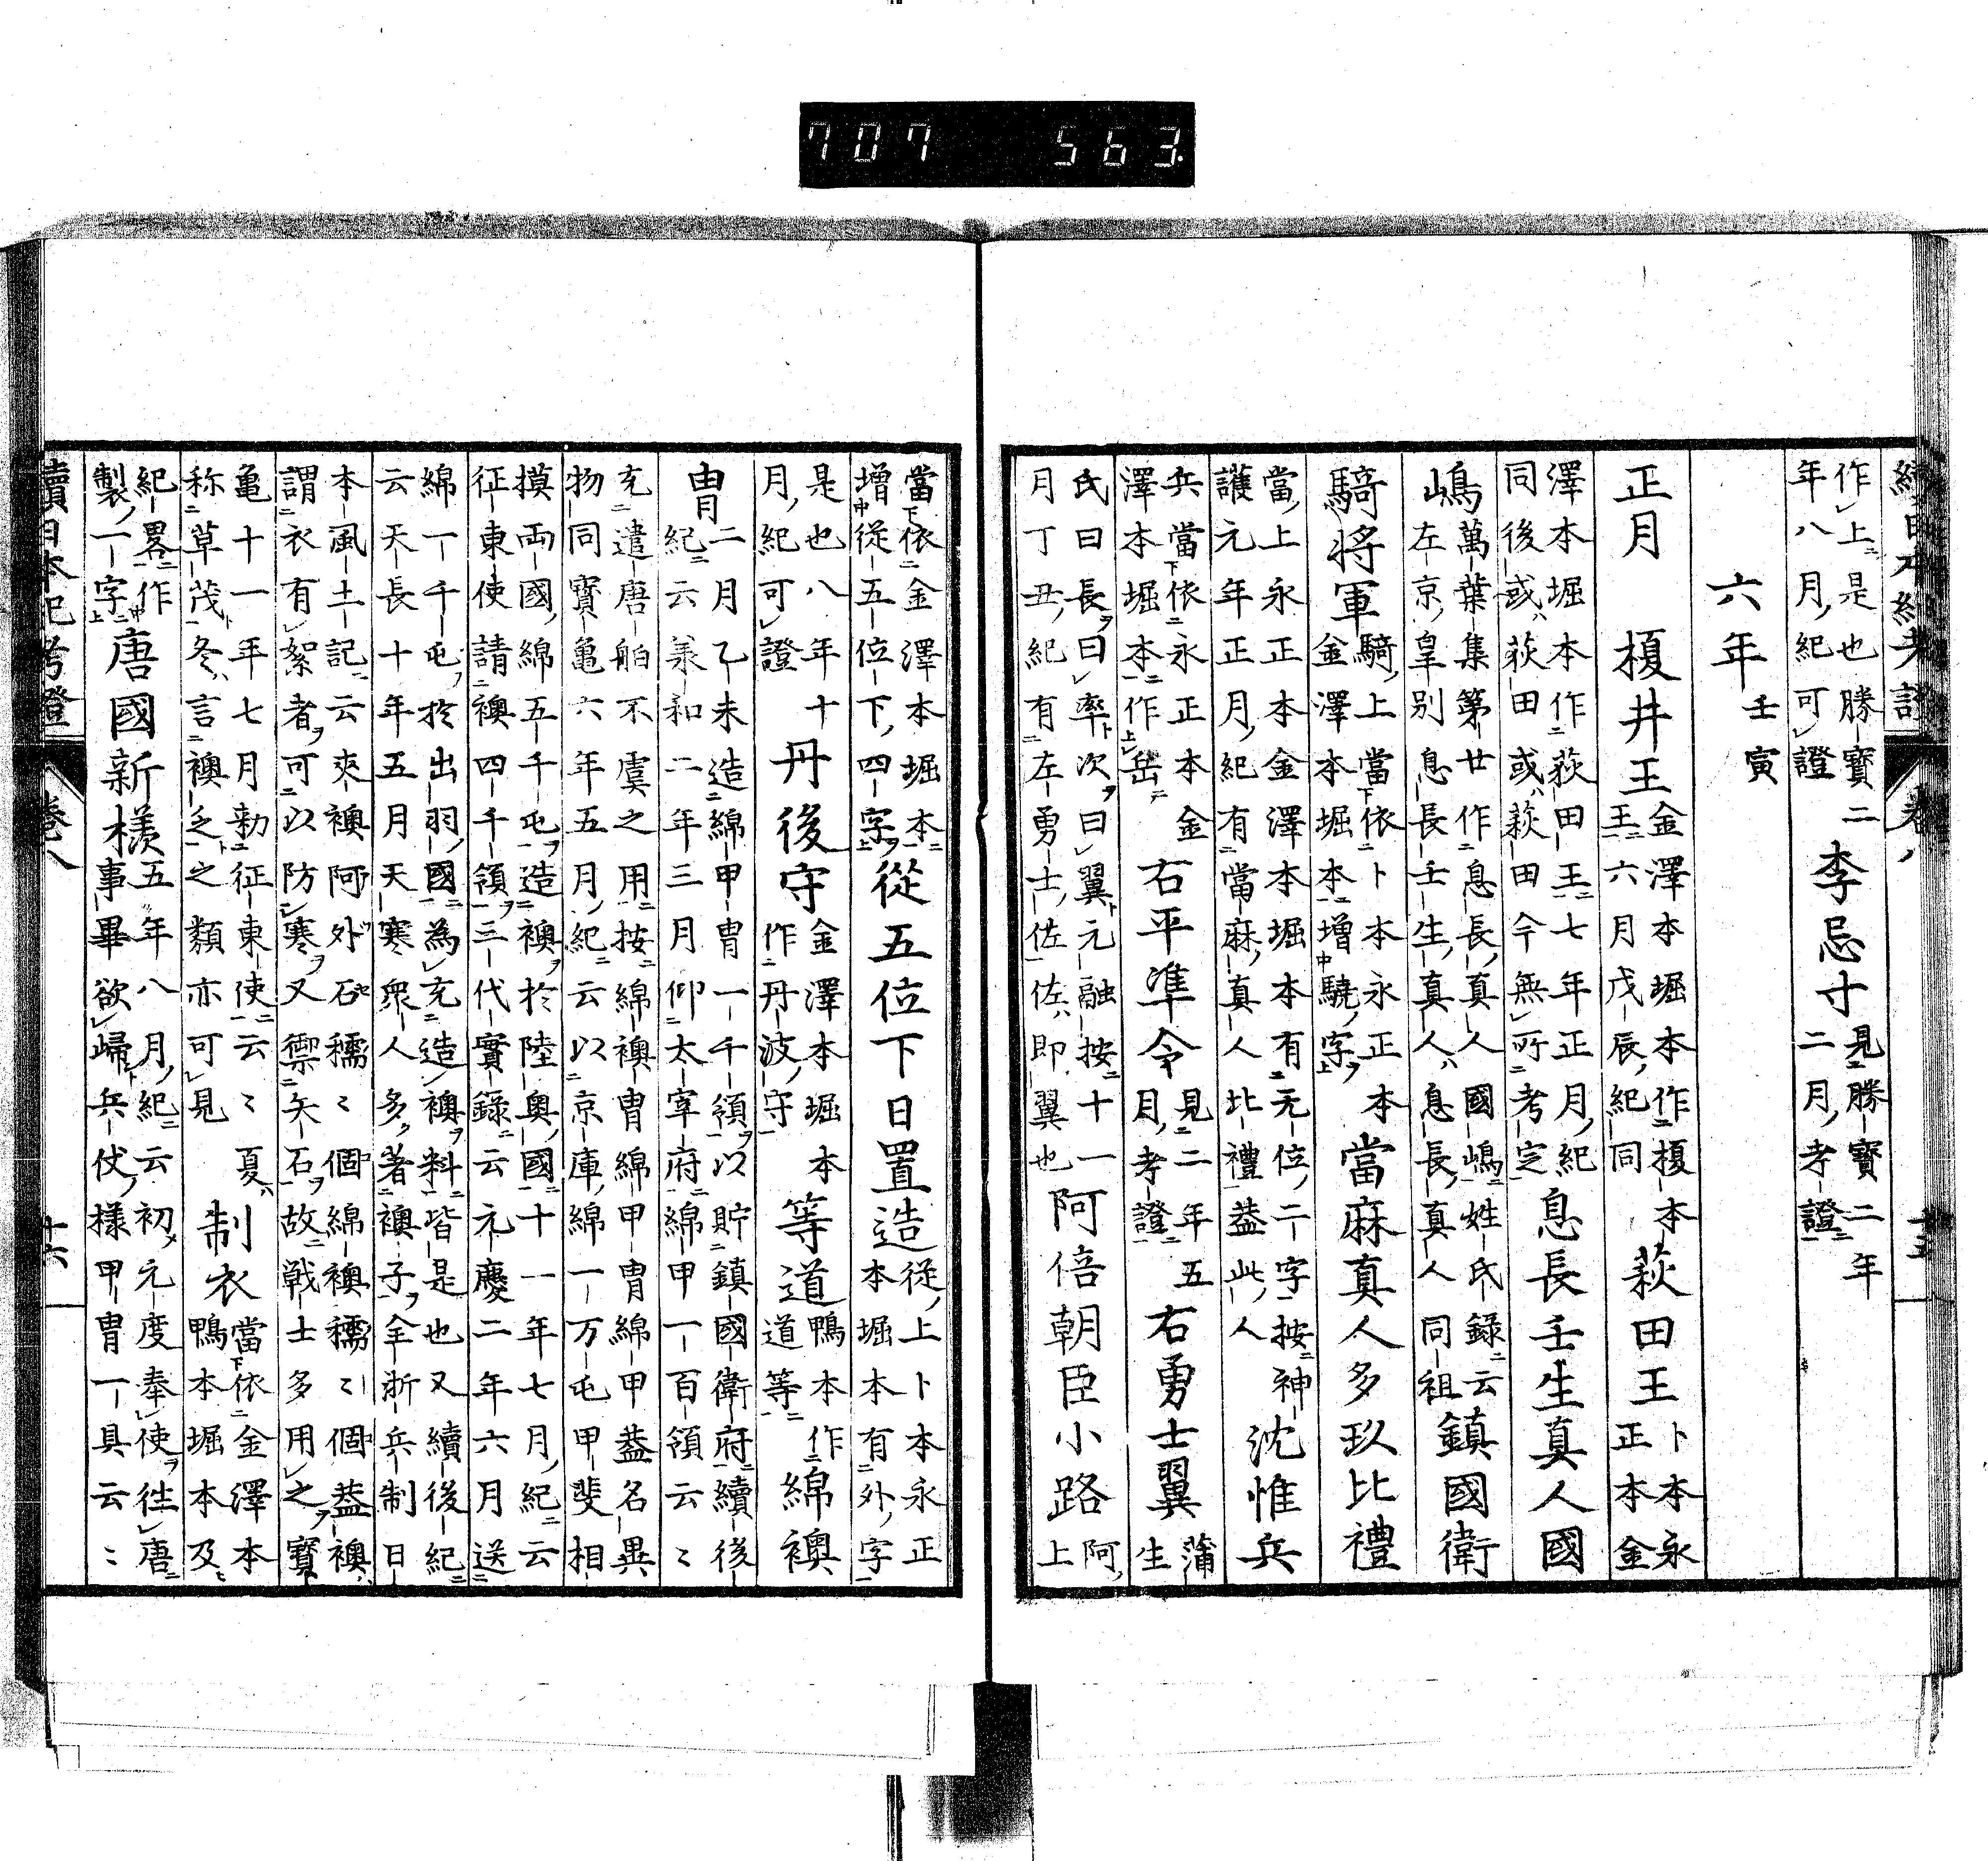 707 563
續日本紀考證 卷八 十五
作上是也勝寶二
年八月紀可證
李忌寸
見勝寶二年
二月考證
六年 壬寅
正月 榎井王
金澤本堀本作榎本
王六月戊辰紀同
萩田王
卜本永
正本金
澤本堀本作萩田王七年正月紀
同後或荻田或萩田今無所考定
息長壬生真人國
嶋
萬葉集第廿作息長真人國嶋姓氏錄云
左京皇別息長壬生真人息長真人同祖
鎮國衛
騎將軍
騎上當依卜本永正本
金澤本堀本增驍字
當麻真人多玖比禮
當上永正本金澤本堀本有无位二字按神
護元年正月紀有當麻真人比禮葢此人
沈惟兵
兵當依永正本金
澤本堀本作岳
右平準令
見二年五
月考證
右勇士翼
蒲生
氏曰長曰率次曰翼元融按十一
月丁丑紀有左勇士佐佐即翼也
阿倍朝臣小路
阿上
當依金澤本堀本
增從五位下四字
從五位下日置造
從上卜本永正
本堀本有外字
是也八年十
月紀可證
丹後守
金澤本堀本
作丹波守
等道
鴨本作
道等
綿襖
冑
二月乙未造綿甲冑一千領以貯鎮國衛府續後
紀云羕和二年三月仰太宰府綿甲一百領云〻
充遣唐舶不虞之用按綿襖冑綿甲冑綿甲葢名異
物同寶亀六年五月紀云以京庫綿一万屯甲斐相
摸兩國綿五千屯造襖於陸奧國十一年七月紀云
征東使請襖四千領三代實錄云元慶二年六月送
綿一千屯於出羽國為充造襖料皆是也又續後紀
云天長十年五月天寒衆人多著襖子全浙兵制日
本風土記云夾襖阿外石襦〻個綿襖襦〻個葢襖
謂衣有絮者可以防寒又禦矢石故戰士多用之寶
亀十一年七月勅征東使云〻夏
称草茂冬言襖乏之類亦可見
制衣
當依金澤本
鴨本堀本及
紀畧作
製一字
唐國新樣
五年八月紀云初元度奉使徃唐
事畢欲歸兵仗樣甲冑一具云〻
續日本紀考證 卷八 十六